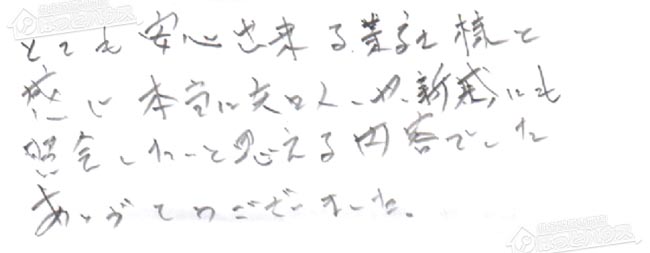 とても安心出来る業者様と
感じ本当に知人や、親戚にも
照会したいと思える内容でした
ありがとうございました。